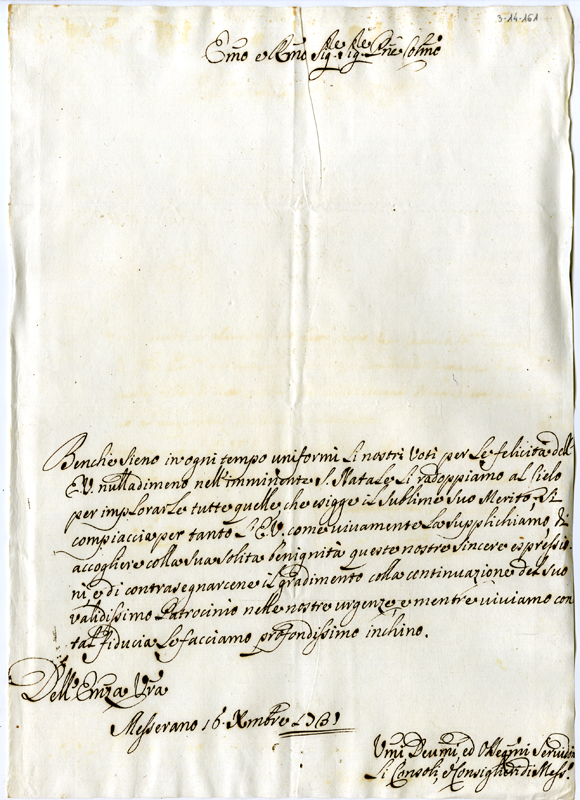 3-14-161
Em̃o e Rm̃o Sig.re Sig.re Pñe Colm̃o
Benche sieno in ogni tempo uniformi li nostri Voti per le felicità dell'
E.V. nulladimeno nell'imminente S. Natale li radoppiamo al Cielo
per implorarle tutte quelle, che esigge il sublime suo Merito, si
compiaccia per tanto L'E.V. come vivamente La supplichiamo, di
accogliere colla sua solita benignità queste nostre sincere espressio-
ni, e di contrasegnarcene il gradimento colla continuazione del suo
validissimo Patrocinio nelle nostre urgenze, e mentre viviamo con
tal fiducia Le facciamo profondissimo inchino.
Dell'Emz̃a Vr̃a
Messerano 16 Xmbre 1731
Vm̃i Deum̃i ed Osseqm̃i Servidori
Li Consoli, e Consiglieri di Mess.o